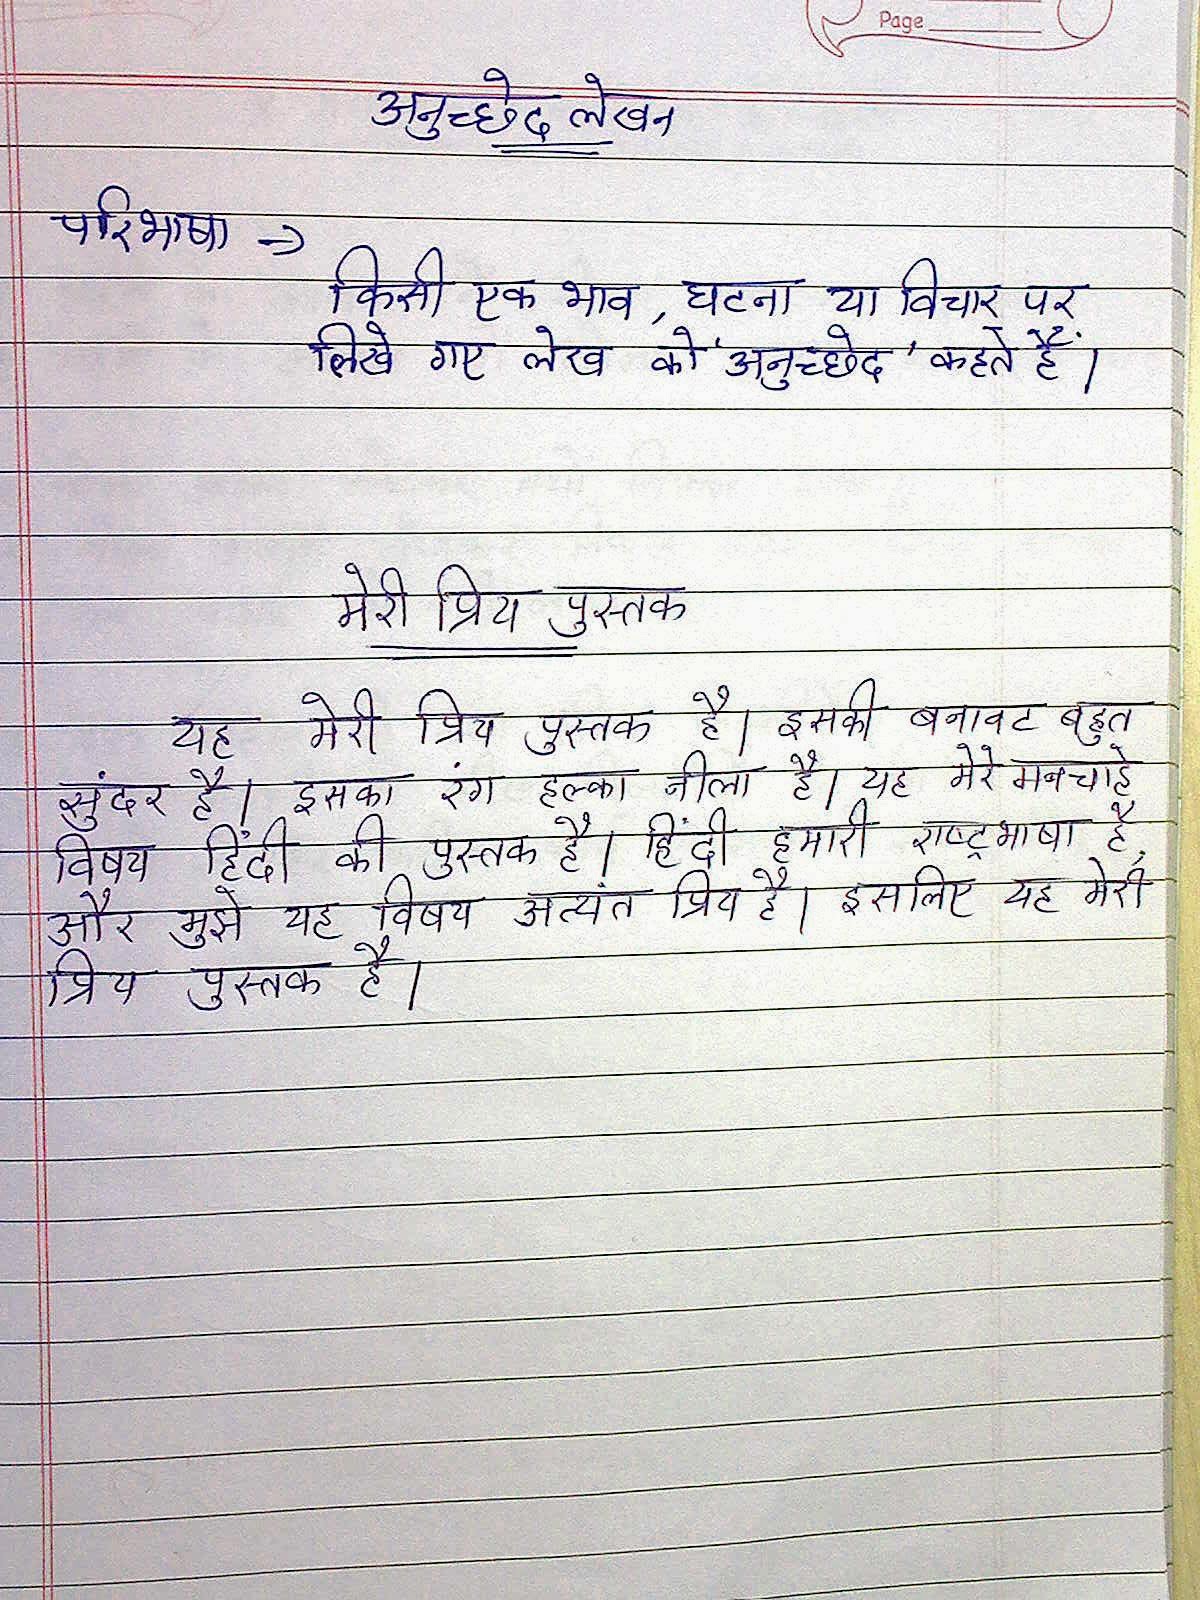 Page
अनुच्छेद लेखन
परिभाषा →
किसी एक भाव, घटना या विचार पर
लिखे गए लेख को 'अनुच्छेद' कहते हैं।
मेरी प्रिय पुस्तक
यह मेरी प्रिय पुस्तक है। इसकी बनावट बहुत
सुंदर है। इसका रंग हल्का नीला है। यह मेरे मनचाहे
विषय हिंदी की पुस्तक है। हिंदी हमारी राष्ट्रभाषा है,
और मुझे यह विषय अत्यंत प्रिय है। इसलिए यह मेरी
प्रिय पुस्तक है।